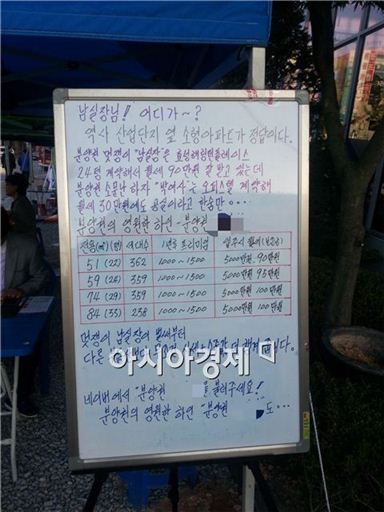 남실장님! 어디가~?
역시 산업단지 옆 소형아파트가 정답이다.
분양권 멋쟁이 "남실장"은 효성해링턴플레이스
24평 계약해서 월세 90만원 잘 받고 있는데
분양권 소문난 하자 "박여사"는 오피스텔 계약해
월세 30만원에도 공실이라고 한숨만…
분양권의 영원한 하인 - 분양권
전용(㎡)(평) 세대수 1년후 프리미엄 입주시 월세(보증금)
51 (22) 362 1000~1500 5000만원 90만원
59 (24) 359 1000~1500 5000만원 95만원
74 (29) 359 1000~1500 5000만원 100만원
84 (33) 238 1000~1500 5000만원 100만원
멋쟁이 남실장의 발빠른
다른 니다.
아시아경제
네이버에서 "분양권 을 불러주세요!
분양권의 영원한 하인 "분양권 도…